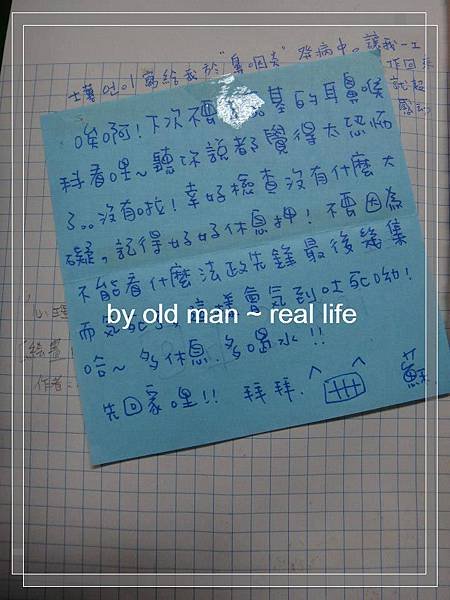 土著여이寫給我於"鼻咽炎"發病中。讓我一工
作回來
就超
感動
唉啊!下次不要 基的耳鼻喉
科看哩~聽你說都覺得太恐怖
了。。沒有啦!幸好檢查沒有什麼大
礙,記得好好休息押!不要因為
不能看什麼法政先鋒最後幾集
而氣 這樣會氣到吐死呦!
哈~多休息.多喝水!!
先回家哩!!拜拜. 蘇.
心理
作者:
by old man ~ real life